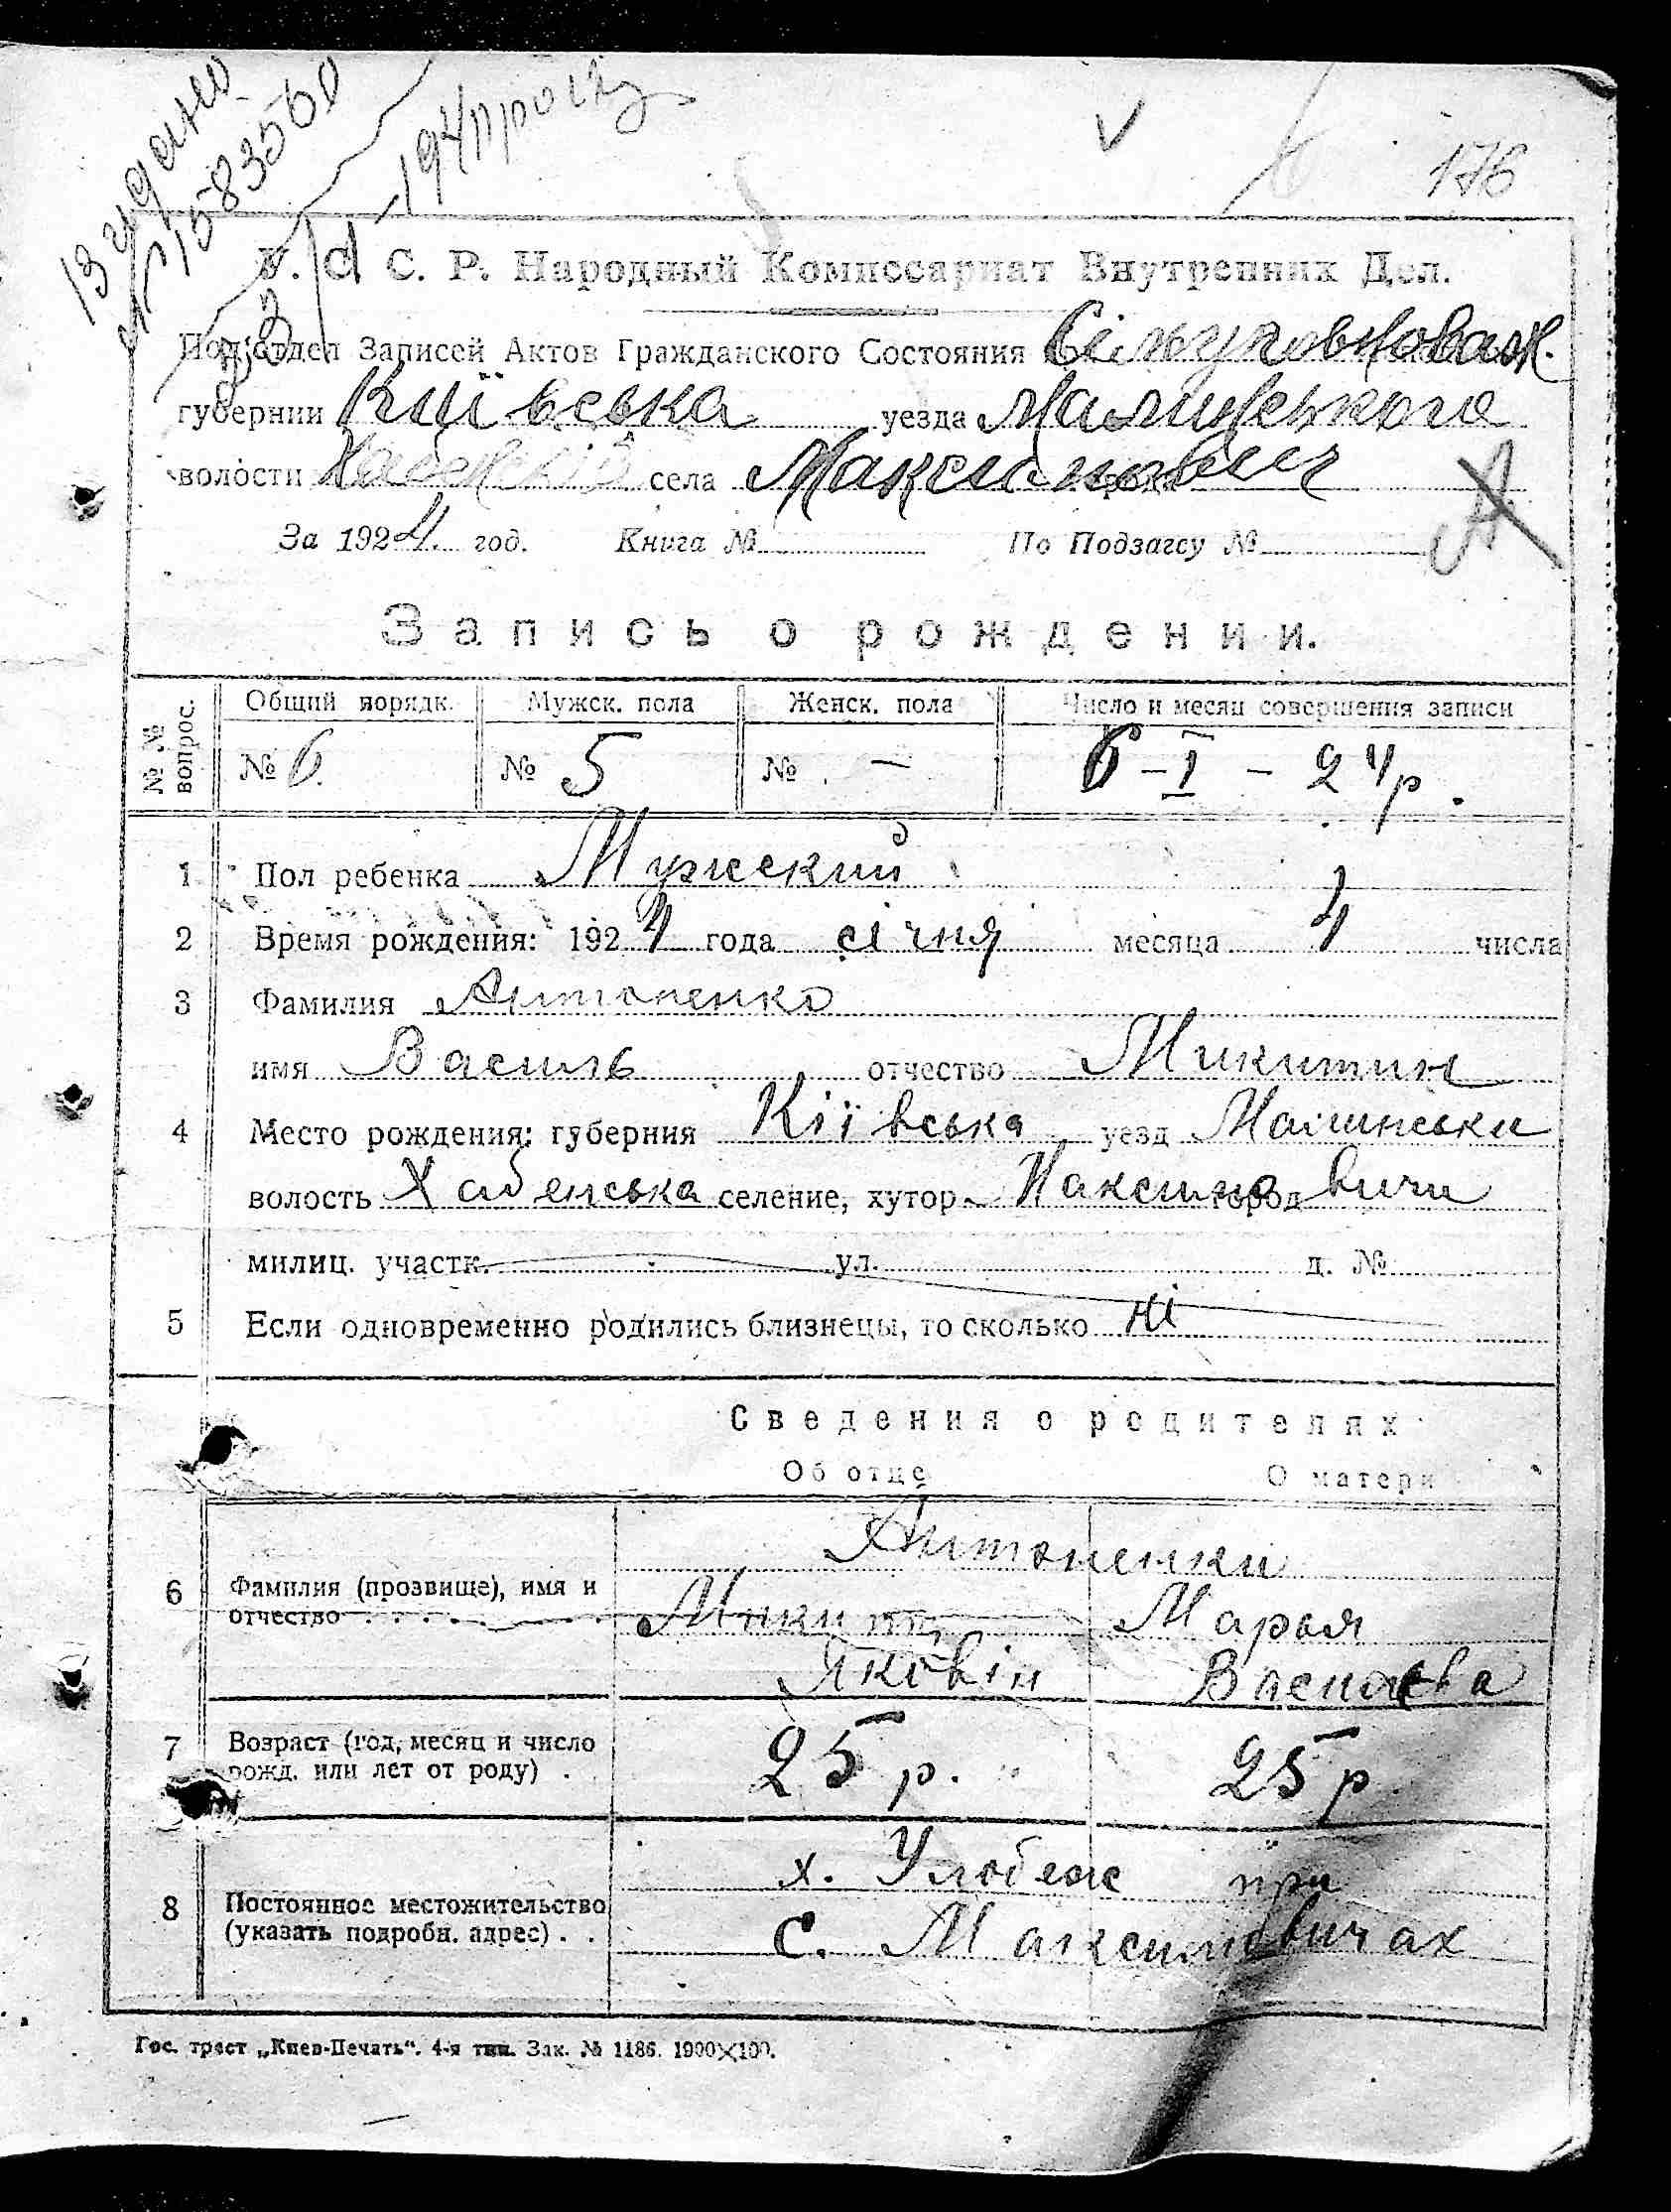 176
У. С. С. Р. Народный Комиссариат Внутренних Дел.
Подотдел Записей Актов Гражданского Состояния
губернии Київська уезда Малинського
волости села Максимович
За 1924 год. Книга № По Подзагсу №
А
Запись о рождении.
№№ вопрос. Общий порядк. Мужск. пола Женск. пола Число и месяц совершения записи
№ 6. № 5 № — 6 – I – 24 р.
1 Пол ребенка Мужский
2 Время рождения: 1924 года січня месяца 4 числа
3 Фамилия Антоненко
имя Василь отчество Микитин
4 Место рождения: губерния Кіївська уезд Малинськи
волость Хабенська селение, хутор, город Максимовичи
милиц. участк. ул. д. №
5 Если одновременно родились близнецы, то сколько ні
Сведения о родителях
Об отце О матери
Антоненки
6 Фамилия (прозвище), имя и отчество . . . . Микита Марья
Яковін Васильева
7 Возраст (год, месяц и число рожд. или лет от роду) . 25 р. 25 р
8 Постоянное местожительство (указать подробн. адрес) . . х. при
с. Максимовичах
Гос. трест „Киев-Печать“. 4-я тип. Зак. № 1186. 1000×100.